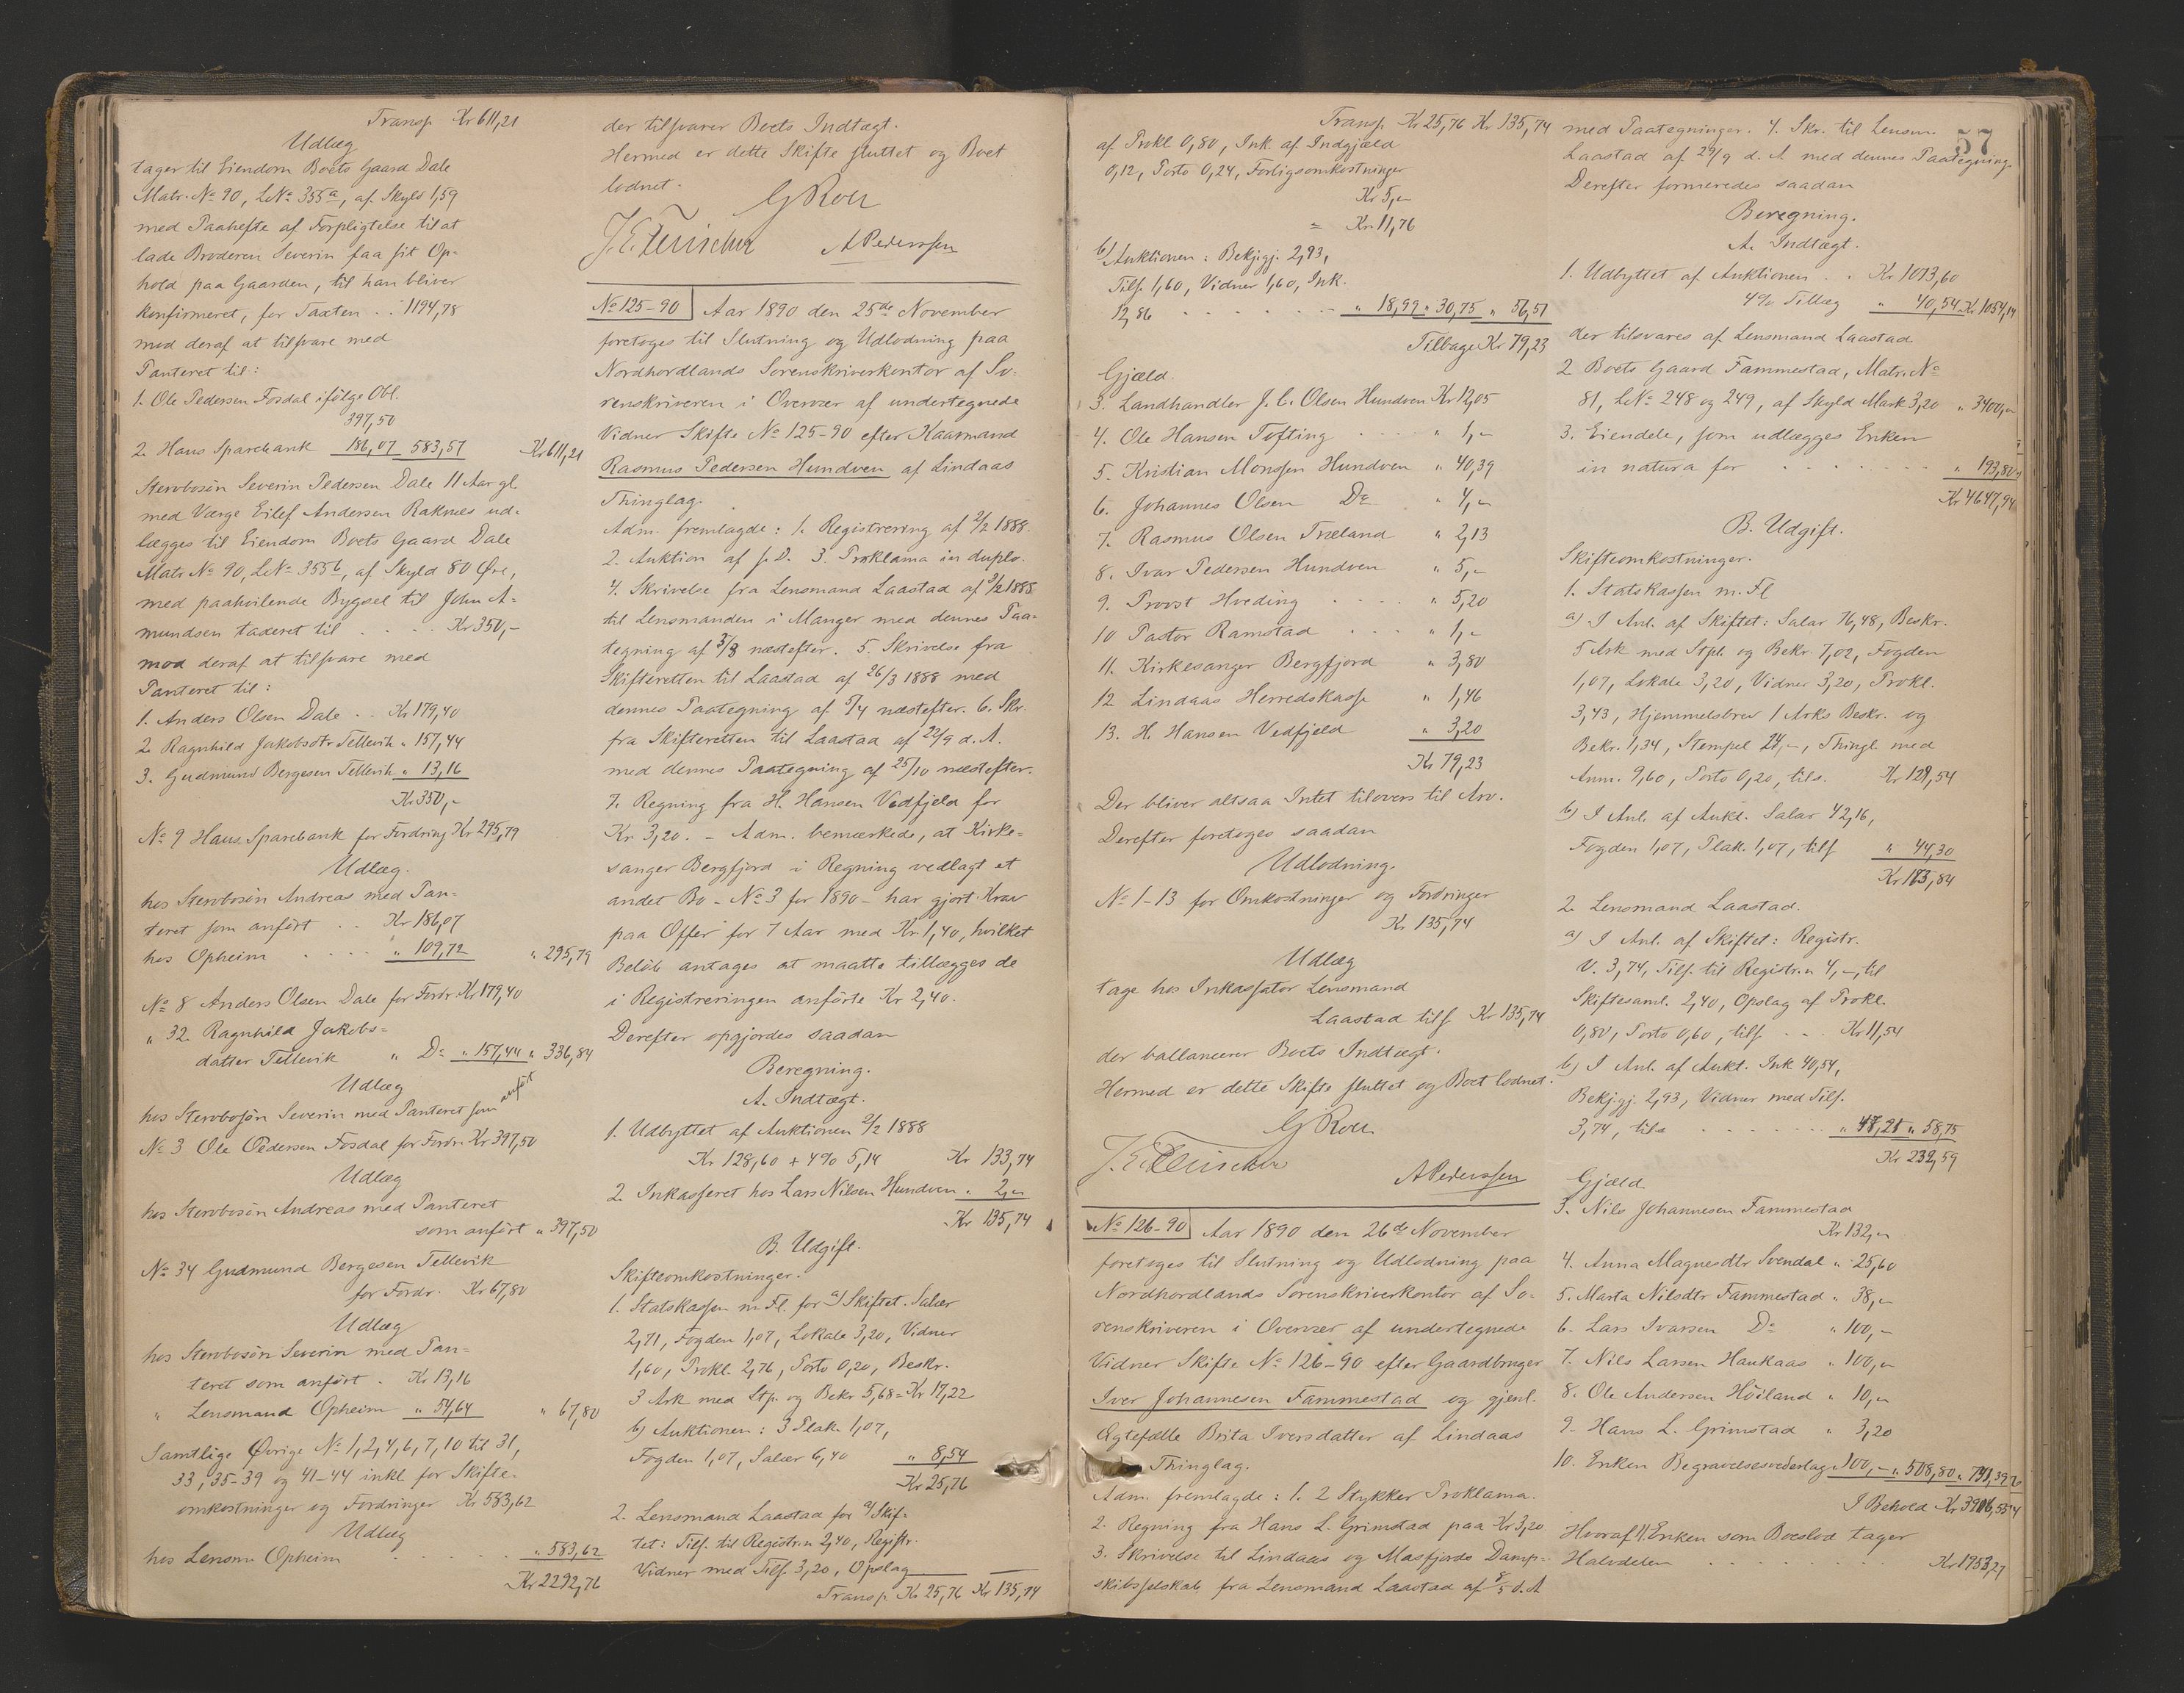 Transp Kr 611,21
Udlæg
tager til Eiendom Boets Gaard Dale
Matr. No 90, LNo 355a, af Skyld 1,59
med Paahefte af Forpligtelse til at
lade Broderen Severin faa sit Op-
hold paa Gaarden, til han bliver
konfirmeret, for Taxten . . 1194,78
mod deraf at tilsvare med
Panteret til:
1. Ole Pedersen Fosdal ifölge Obl.
397,50
2. Haus Sparebank 186,07 583,57 Kr 611,21
Stervbosön Severin Pedersen Dale 11 Aar gl.
med Værge Eilef Andersen Raknæs ud-
lægges til Eiendom Boets Gaard Dale
Matr No 90, LNo 355b, af Skyld 80 Øre,
med paahvilende Bygsel til John A-
mundsen taxeret til . . . Kr 350,-
mod deraf at tilsvare med
Panteret til:
1. Anders Olsen Dale . . Kr 179,40
2. Ragnhild Jakobsdtr Tellevik " 157,44
3. Gudmund Bergesen Tellevik " 13,16
Kr 350,-
No 9 Haus Sparebank for Fordring Kr 295,79
Udlæg.
hos Stervbosön Andreas med Pan-
teret som anfört . . Kr 186,07
hos Opheim . . . . " 109,72 " 295,79
No 8 Anders Olsen Dale for Fordr. Kr 179,40
" 32. Ragnhild Jakobs-
datter Tellevik " Do " 157,44 " 336,84
Udlæg
hos Stervbosön Severin med Panteret som anfört
No 3 Ole Pedersen Fosdal for Fordr. Kr 397,50
Udlæg
hos Stervbosön Andreas med Panteret
som anfört " 397,50
No 34 Gudmund Bergesen Tellevik
for Fordr. Kr 67,80
Udlæg
hos Stervbosön Severin med Pan-
teret som anfört . Kr 13,16
" Lensmand Opheim " 54,64 " 67,80
Samtlige Øvrige No 1, 2, 4, 6, 7, 10 til 31,
33, 35-39 og 41-44 inkl for Skifte-
omkostninger og Fordringer Kr 583,62
Udlæg
hos Lensm Opheim . . . . " 583,62
Kr 2292,76
der tilsvarer Boets Indtægt.
Hermed er dette Skifte sluttet og Boet
lodnet.
G Roll
A Pederssen
No 125-90 Aar 1890 den 25de November
foretoges til Slutning og Udlodning paa
Nordhordlands Sorenskriverkontor af So-
renskriveren i Overvær af undertegnede
Vidner Skifte No 125-90 efter Kaarmand
Rasmus Pedersen Hundven af Lindaas
Thinglag.
Adm. fremlagde: 1. Registrering af 2/2 1888.
2. Auktion af s. D. 3. Proklama in duplo.
4. Skrivelse fra Lensmand Laastad af 3/2 1888
til Lensmanden i Manger med dennes Paa-
tegning af 3/3 næstefter. 5. Skrivelse fra
Skifteretten til Laastad af 26/3 1888 med
dennes Paategning af 5/4 næstefter. 6. Skr.
fra Skifteretten til Laastad af 22/9 d. A.
med dennes Paategning af 25/10 næstefter.
7. Regning fra H. Hansen Vedfjeld for
Kr. 3,20. - Adm. bemærkede, at Kirke-
sanger Bergfjord i Regning vedlagt et
andet Bo - No 3 for 1890 - har gjort Krav
paa Offer for 7 Aar med Kr. 1,40, hvilket
Belöb antages at maatte tillægges de
i Registreringen anförte Kr 2,40.
Derefter opgjordes saadan
Beregning.
A. Indtægt.
1. Udbyttet af Auktionen 2/2 1888
Kr 128,60 + 4% 5,14 Kr 133,74
2. Inkasseret hos Lars Nilsen Hundven " 2,-
Kr 135,74
B. Udgift.
Skifteomkostninger.
1. Statskassen m. Fl. for a) Skiftet. Salær
2,71, Fogden 1,07, Lokale 3,20, Vidner
1,60, Prokl. 2,76, Porto 0,20, Beskr.
3 Ark med Stp. og Bekr 5,68 = Kr 17,22
b) Auktionen: 3 Plak 1,07,
Fogden 1,07, Salær 6,40 " 8,54
Kr 25,76
2. Lensmand Laastad for a) Skif-
tet: Tils. til Registr.n 2,40, Registr.
Vidner med Tils. 3,20, Opslag
Transp. Kr 25,76 Kr 135,74
Transp Kr 25,76 Kr 135,74
af Prokl 0,80, Ink. af Indgjæld
0,12, Porto 0,24, Forligsomkostninger
Kr 5,-
= Kr 11,76
b) Auktionen: Bekjgj. 2,93,
Tils. 1,60, Vidner 1,60, Ink.
12,86 . . . . " 18,99 " 30,75 " 56,51
Tilbage Kr 79,23
Gjæld.
3. Landhandler J. C. Olsen Hundven Kr 12,05
4. Ole Hansen Tofting . . . " 1,-
5. Kristian Monssen Hundven " 40,39
6. Johannes Olsen Do . " 4,-
7. Rasmus Olsen Træland " 2,13
8. Ivar Pedersen Hundven " 5,-
9. Provst Hveding . . . " 5,20
10 Pastor Ramstad . . . " 1,-
11. Kirkesanger Bergfjord " 3,80
12. Lindaas Herredskasse " 1,46
13. H. Hansen Vedfjeld " 3,20
Kr 79,23
Der bliver altsaa Intet tilovers til Arv.
Derefter foretoges saadan
Udlodning.
No 1-13 for Omkostninger og Fordringer
Kr 135,74
Udlæg
tage hos Inkassator Lensmand
Laastad tils. Kr 135,74
der ballancerer Boets Indtægt.
Hermed er dette Skifte sluttet og Boet lodnet.
G Roll
A Pederssen
No 126-90 Aar 1890 den 26de November
foretoges til Slutning og Udlodning paa
Nordhordlands Sorenskriverkontor af So-
renskriveren i Overvær af undertegnede
Vidner Skifte No 126-90 efter Gaardbruger
Iver Johannesen Fammestad og gjenl.
Ægtefælle Brita Iversdatter af Lindaas
Thinglag.
Adm. fremlagde: 1. 2 Stykker Proklama.
2. Regning fra Hans L. Grimstad paa Kr 3,20
3. Skrivelse til Lindaas og Masfjords Damp-
skibsselskab fra Lensmand Laastad af 8/5 d. A
57
med Paategninger. 4. Skr. til Lensm.
Laastad af 29/9 d. A med dennes Paategning.
Derefter formeredes saadan
Beregning.
A. Indtægt.
1. Udbyttet af Auktionen . . Kr 1013,60
4% Tillæg " 40,54 Kr 1054,14
der tilsvares af Lensmand Laastad.
2 Boets Gaard Fammestad, Matr. No
81, LNo 248 og 249, af Skyld Mark 3,20 " 3400,-
3. Eiendele, som udlægges Enken
in natura for . . . . " 193,80
Kr 4647,94
B. Udgift.
Skifteomkostninger.
1. Statskassen m. Fl
a) I Anl. af Skiftet: Salær 76,48, Beskr.
5 Ark med Stpl. og Bekr. 7,02, Fogden
1,07, Lokale 3,20, Vidner 3,20, Prokl.
3,43, Hjemmelsbrev 1 Arks Beskr. og
Bekr. 1,34, Stempel 24,-, Thingl. med
Anm. 9,60, Porto 0,20, tils. Kr 129,54
b) I Anl. af Aukt. Salær 42,16,
Fogden 1,07, Plak. 1,07, tils " 44,30
Kr 173,84
2. Lensmand Laastad.
a) I Anl. af Skiftet: Registr.
V. 3,74, Tils. til Registr.n 4,-, til
Skiftesaml. 2,40, Opslag af Prokl.
0,80, Porto 0,60, tils . . Kr 11,54
b) I Anl. af Aukt. Ink 40,54,
Bekjgj. 2,93, Vidner med Tils.
3,74, tils . . . . " 47,21 " 58,75
Kr 232,59
Gjæld
3. Nils Johannesen Fammestad
Kr 132,-
4. Anna Magnesdtr Svendal " 25,60
5. Marta Nilsdtr Fammestad " 38,-
6. Lars Ivarsen Do " 100,-
7. Nils Larsen Haukaas " 100,-
8. Ole Andersen Höiland " 10,-
9. Hans L. Grimstad " 3,20
10. Enken Begravelsesvederlag " 100,- " 508,80
I Behold
Hvoraf Enken som Boeslod tager
Halvdelen . . . .